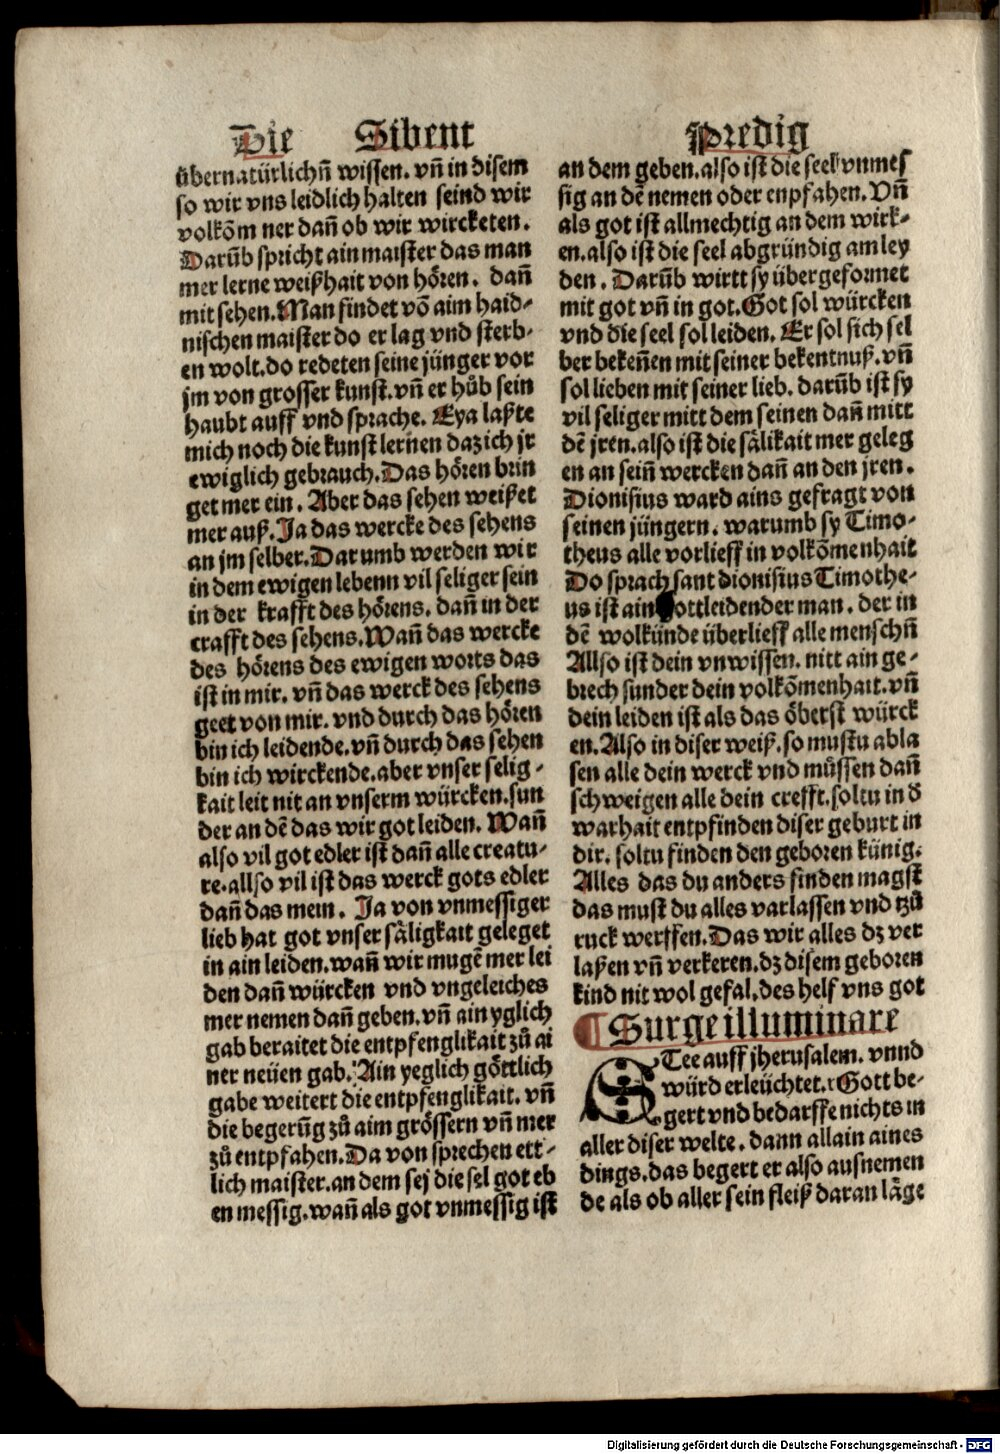 Die Sibent Predig
übernatürlichñ wissen. vñ in disem
so wir vns leidlich halten seind wir
volkõm ner dañ ob wir wircketen.
Darũb spricht ain maister das man
mer lerne weißhait von hören. dañ
mit sehen. Man findet võ aim haid-
nischen maister do er lag vnd sterb-
en wolt. do redeten seine jünger vor
jm von grosser kunst. vñ er hůb sein
haubt auff vnd sprache. Eya laßte
mich noch die kunst lernen daz ich jr
ewiglich gebrauch. Das hören brin
get mer ein. Aber das sehen weißet
mer auß. Ja das wercke des sehens
an jm selber. Darumb werden wir
in dem ewigen lebenn vil seliger sein
in der krafft des hörens. dañ in der
crafft des sehens. Wañ das wercke
des hörens des ewigen worts das
ist in mir. vñ das werck des sehens
geet von mir. vnd durch das hören
bin ich leidende. vñ durch das sehen
bin ich wirckende. aber vnser selig-
kait leit nit an vnserm würcken. sun
der an dẽ das wir got leiden. Wañ
also vil got edler ist dañ alle creatu-
re. allso vil ist das werck gots edler
dañ das mein. Ja von vnmessiger
lieb hat got vnser säligkait geleget
in ain leiden. wañ wir mugẽ mer lei
den dañ würcken vnd vngeleiches
mer nemen dañ geben. vñ ain yglich
gab beraitet die entpfenglikait zů ai
ner neüen gab. Ain yeglich göttlich
gabe weitert die entpfenglikait. vñ
die begerũg zů aim grössern vñ mer
zů entpfahen. Da von sprechen ett-
lich maister. an dem sej die sel got eb
en messig. wañ als got vnmessig ist
an dem geben. also ist die seel vnmes
sig an dẽ nemen oder enpfahen. Vñ
als got ist allmechtig an dem wirk-
en. also ist die seel abgründig am ley
den. Darũb wirtt sy übergeformet
mit got vñ in got. Got sol würcken
vnd die seel sol leiden. Er sol sich sel
ber bekeñen mit seiner bekentnuß. vñ
sol lieben mit seiner lieb. darũb ist sy
vil seliger mitt dem seinen dañ mitt
dẽ jren. also ist die sälikait mer geleg
en an seiñ wercken dañ an den jren.
Dionisius ward ains gefragt von
seinen jüngern. warumb sy Timo-
theus alle vorlieff in volkõmenhait
Do sprach sant dionisius Timothe-
us ist ain ottleidender man. der in
dẽ wolkünde überlieff alle menschñ
Allso ist dein vnwissen. nitt ain ge-
brech sunder dein volkõmenhait. vñ
dein leiden ist als das öberst würck
en. Also in diser weiß. so mustu abla
sen alle dein werck vnd müssen dañ
schweigen alle dein crefft. soltu in d̕
warhait entpfinden diser geburt in
dir. soltu finden den geboren künig.
Alles das du anders finden magst
das must du alles varlassen vnd tzů
ruck werffen. Das wir alles dz ver
laßen vñ verkeren. dz disem geboren
kind nit wol gefal. des helf vns got
¶ Surge illuminare
STee auff jherusalem. vnnd
würd erleüchtet. Gott be-
gert vnd bedarffe nichts in
aller diser welte. dann allain aines
dings. das begert er also ausnemen
de als ob aller sein fleiß daran läge
Digitalisierung gefördert durch die Deutsche Forschungsgemeinschaft - DFG